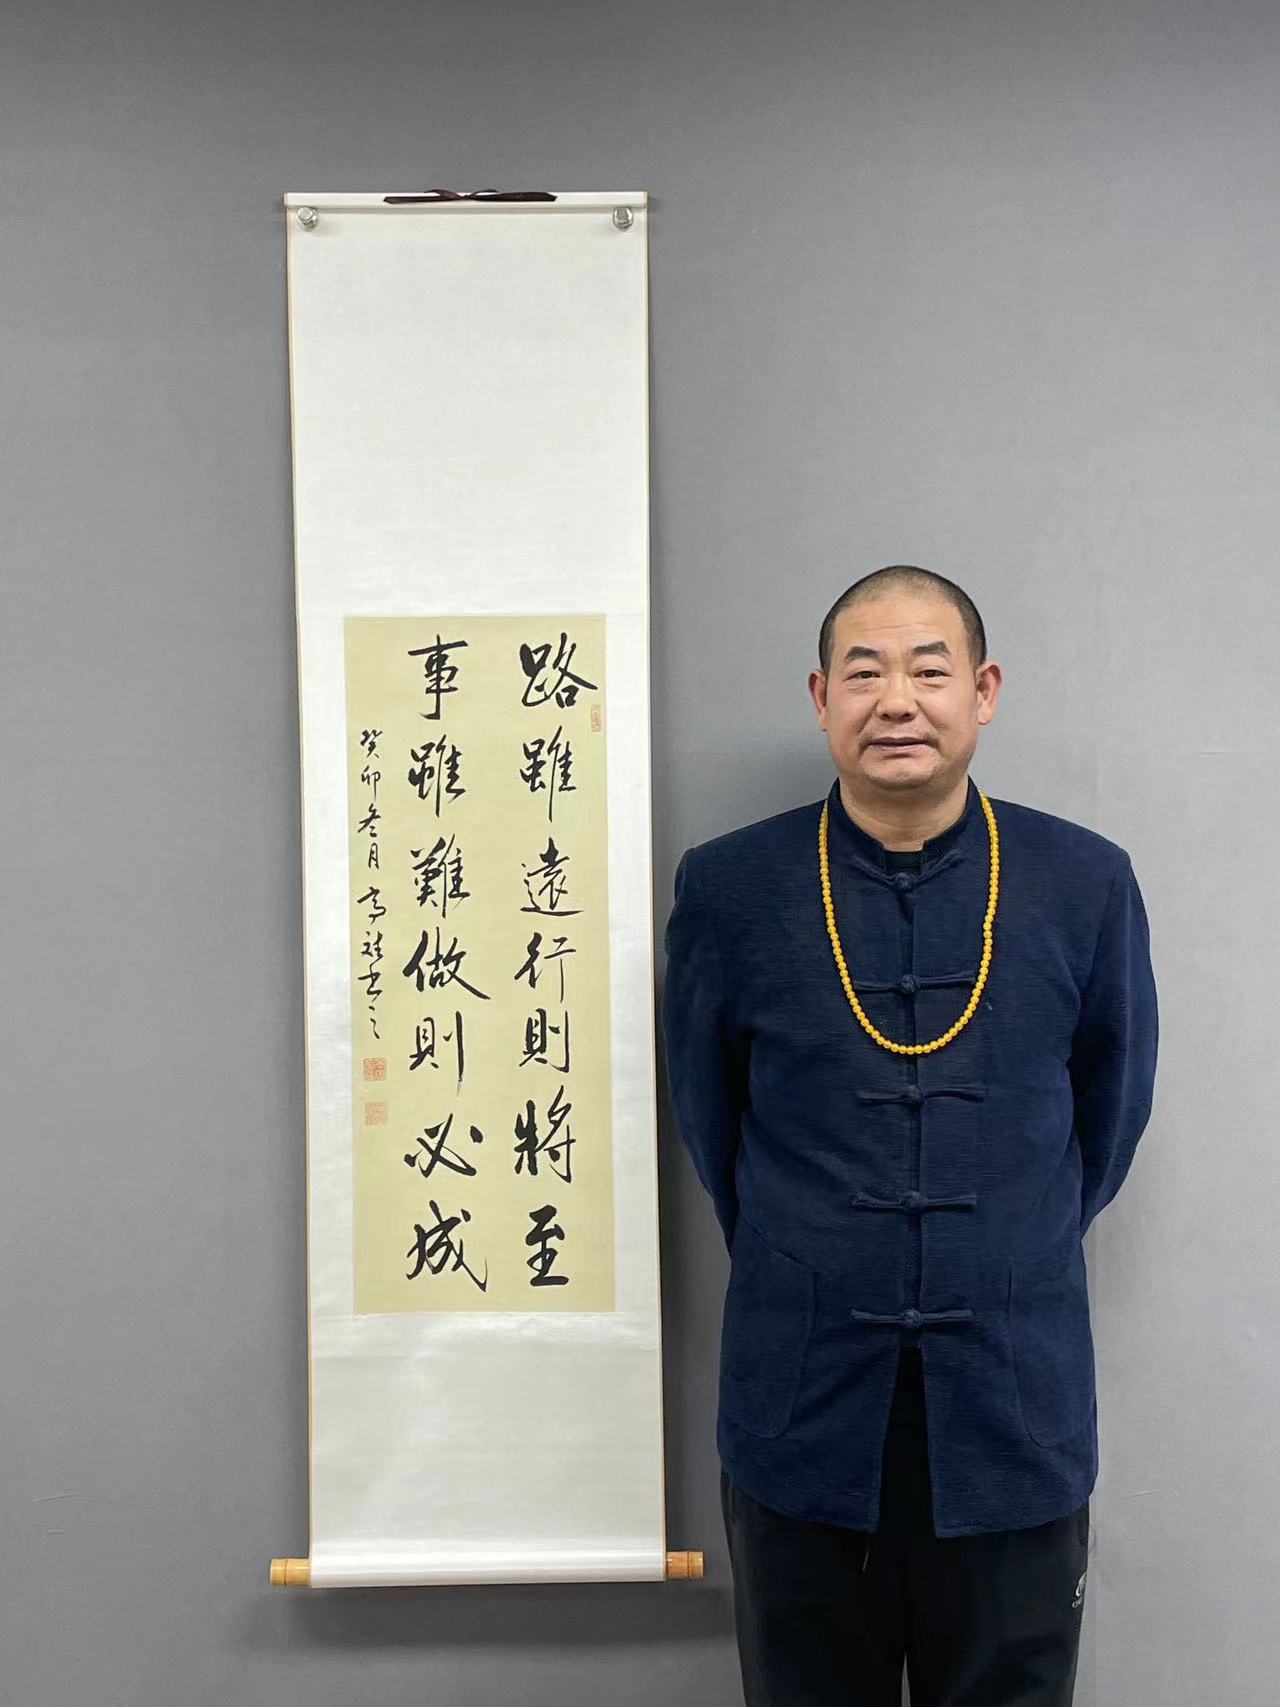 路雖遠行則將至
事雖難做則必成
癸卯冬月
書之